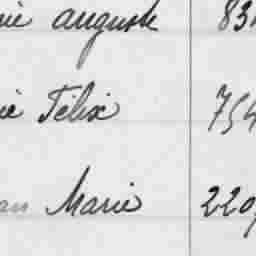 auguste 83
Félix 754
Marie 220